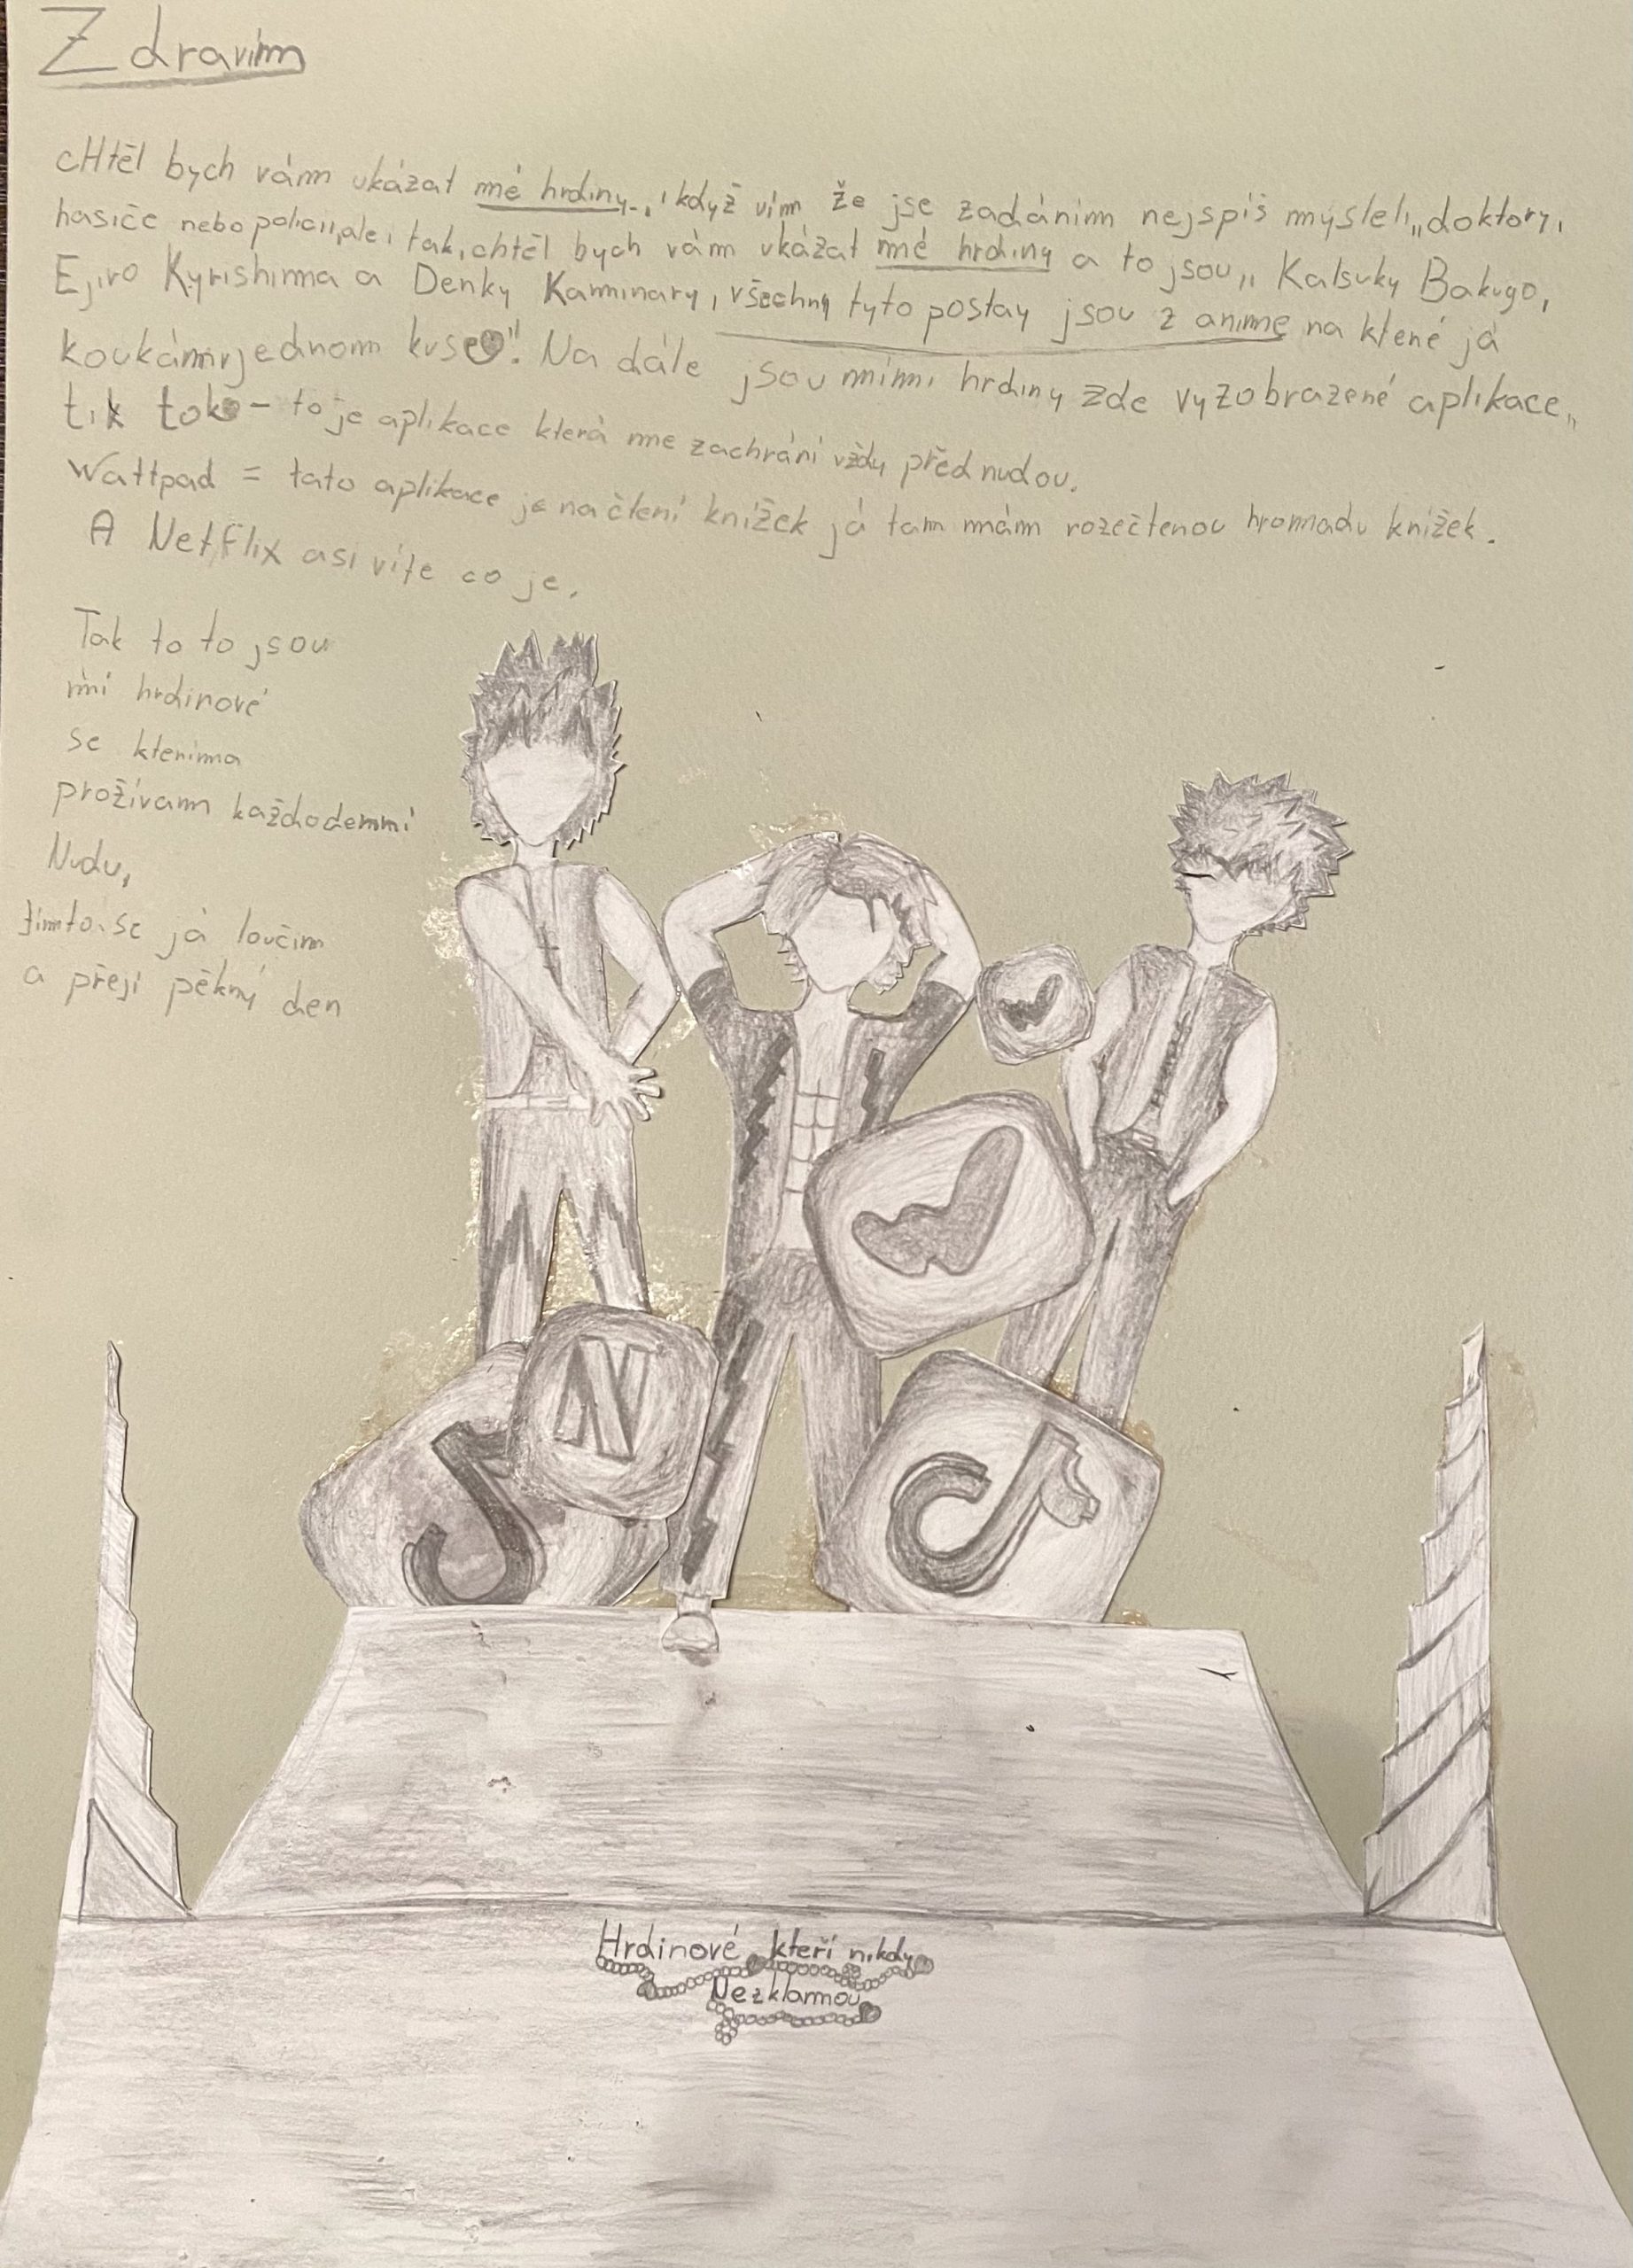 Zdravím
cHtěl bych vám ukázat mé hrdiny, i když vím že jse zadáním nejspíš mysleli,, doktory,
hasiče nebo policii, ale i tak, chtěl bych vám ukázat mé hrdiny a to jsou,, Katsuky Bakugo,
Ejiro Kyrishima a Denky Kaminary, všechny tyto postay jsou z anime na které já
koukám v jednom kuse". Na dále jsou mími hrdiny zde vyzobrazené aplikace,,
tik tok - to je aplikace která mne zachrání vždy před nudou.
Wattpad = tato aplikace je na čtení knížek já tam mám rozečtenou hromadu knížek.
A Netflix asi víte co je.
Tak to to jsou
mí hrdinové
se kterima
prožívam každodenní
Nudu,
tímto se já loučím
a přeji pěkný den
N
Hrdinové kteří nikdy
Nezklamou